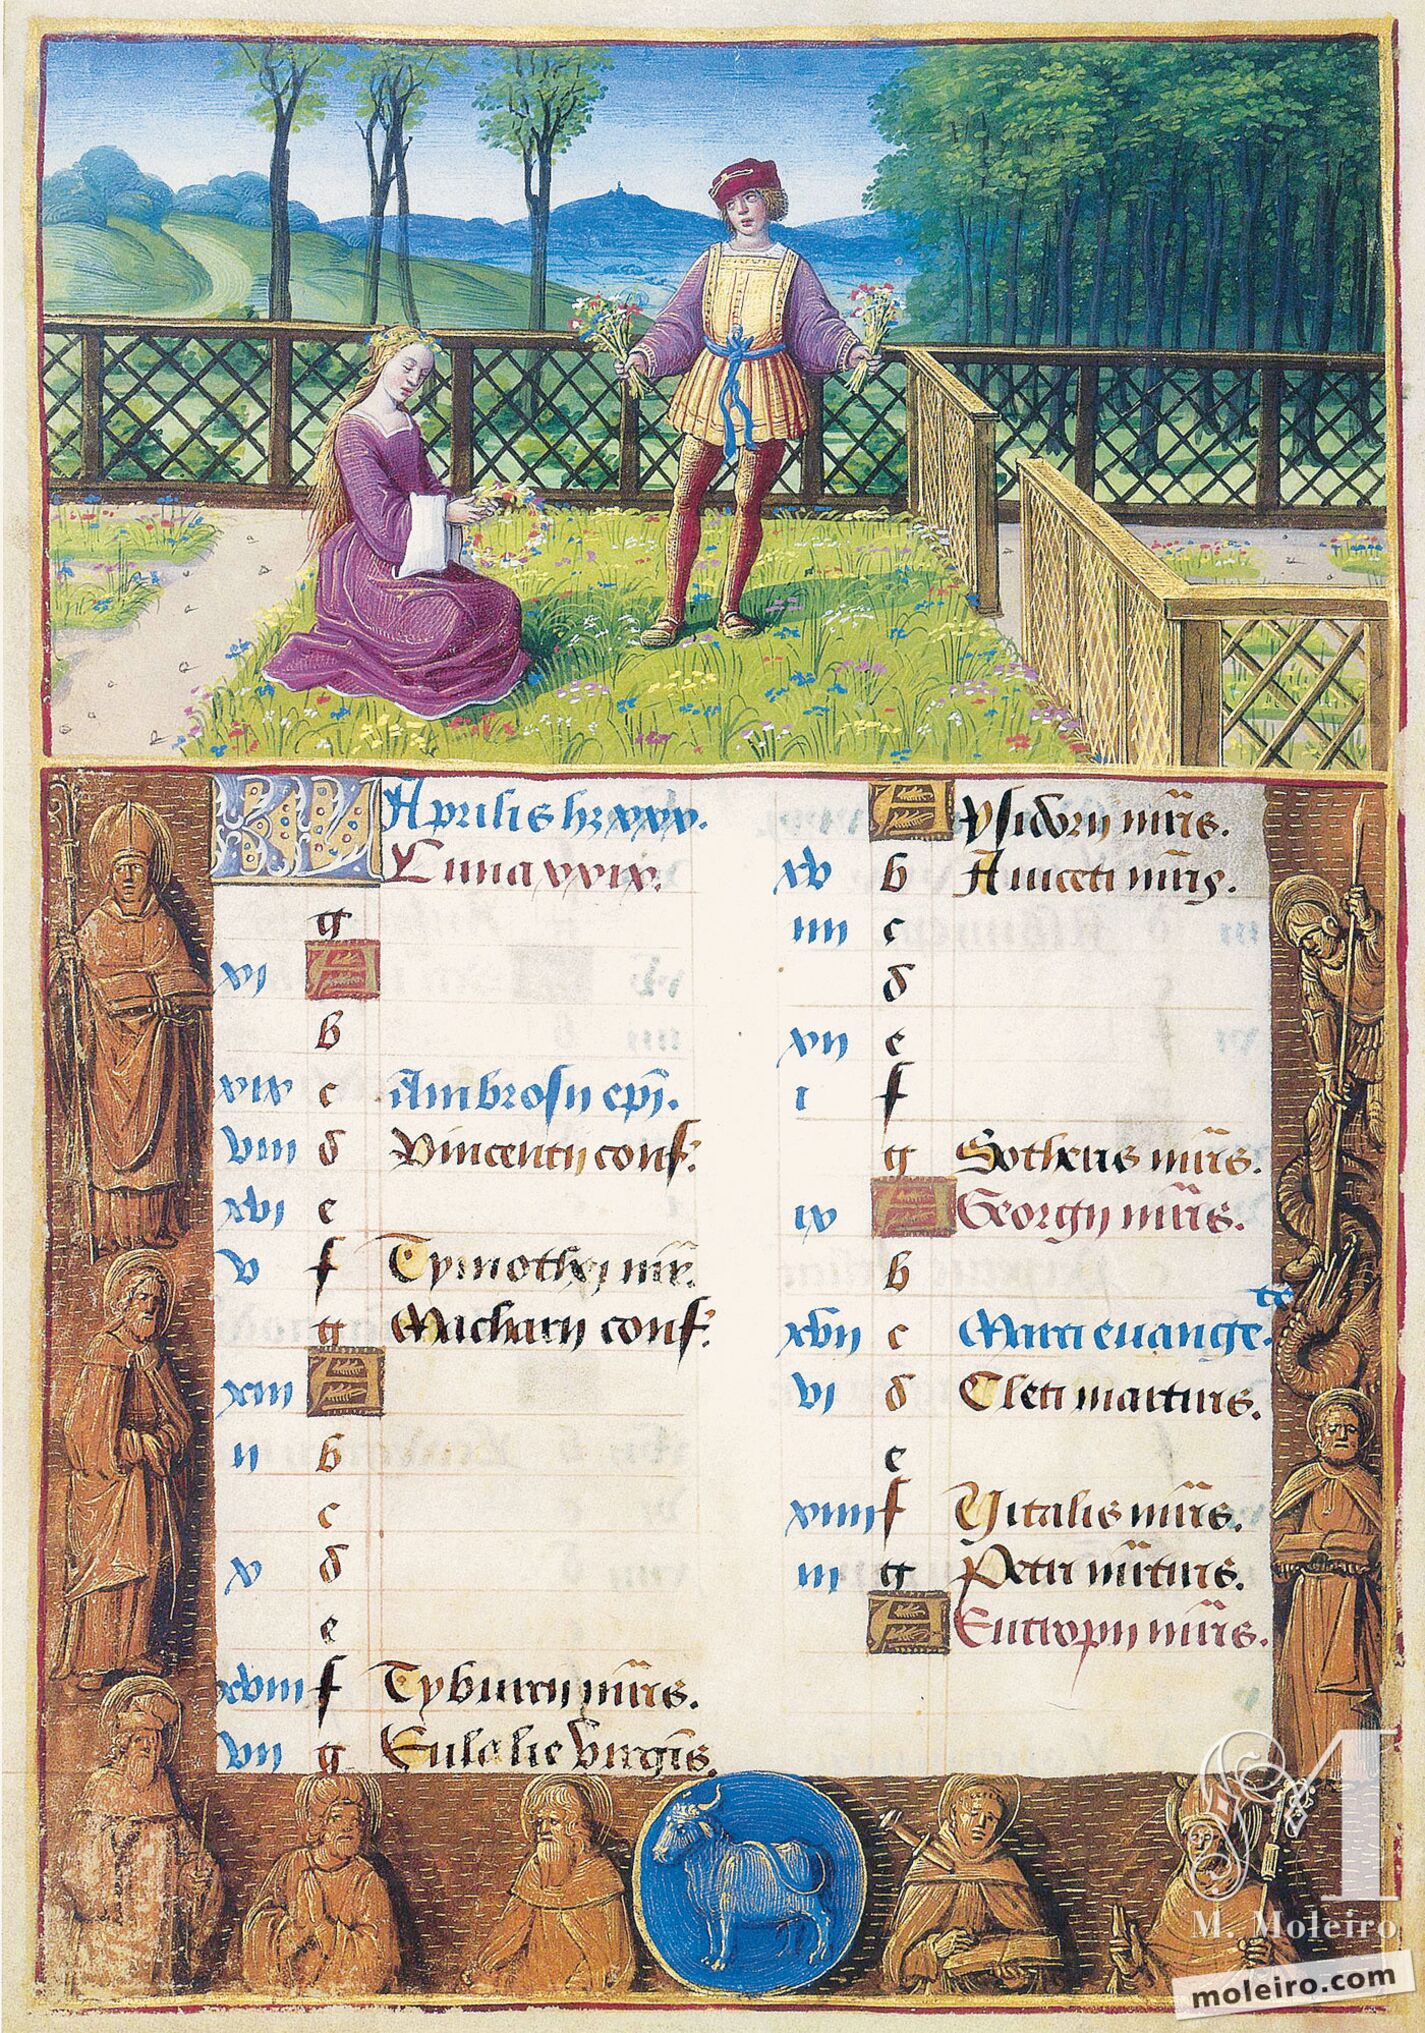 KL Aprilis hz xxx.
Luna xxix.
g
xi A
b
xix c Ambrosii epi.
viii d Vincentii conf.
xvi e
v f Tymothei mr.
g Macharii conf.
xiii A
ii b
c
x d
e
xviii f Tyburcii mris.
vii g Eulalie virginis.
A Ysidorii mris.
xv b Aniceti mris.
iiii c
d
xii e
i f
g Sotheris mris.
ix A Georgii mris.
b
xvii c Marci euange. te
vi d Cleti martiris.
e
xiiii f Vitalis mris.
iii g Petri mrtiris.
A Eutropii mris.
M. Moleiro
moleiro.com